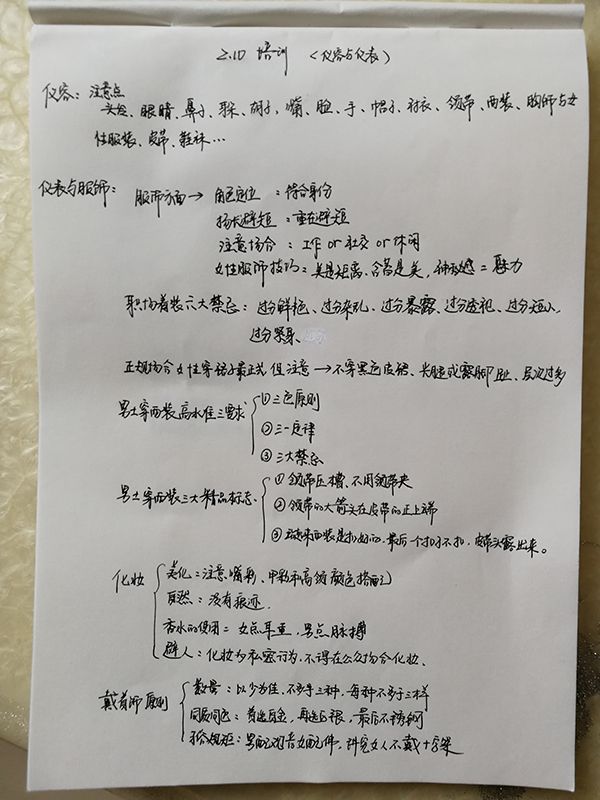 2.10 培训 (仪容与仪表)
仪容: 注意点
头发、眼睛、鼻子、耳朵、胡子、嘴、脸、手、帽子、衬衣、领带、西装、胸饰与女
性服装、皮带、鞋袜…
仪表与服饰: 服饰方面→ 角色定位: 符合身份
扬长避短: 重在避短
注意场合: 工作 or 社交 or 休闲
女性服饰技巧: 美是距离、含蓄是美,
= 魅力
职场着装六大禁忌: 过分鲜艳、过分杂乱、过分暴露、过分透视、过分短小、
过分紧身、
正规场合女性穿裙子最正式 但注意→不穿黑色皮裙、光腿或露脚趾、层次过多
男士穿西装高水准三要求 ①三色原则
②三一定律
③三大禁忌
男士穿西装三大精品标志: ①领带压槽、不用领带夹
②领带的大箭头在皮带的正上端
③ 西装是扣好的, 最后一个扣子不扣, 皮带头露出来。
化妆 美化: 注意嘴彩、甲彩和高级颜色搭配
自然: 没有痕迹.
香水的使用= 女点耳垂, 男点脉搏
避人: 化妆为私密行为, 不得在公众场合化妆、
戴首饰原则 数量: 以少为佳, 不多于三种, 每种不多于三样
同质同色:
符合规矩: